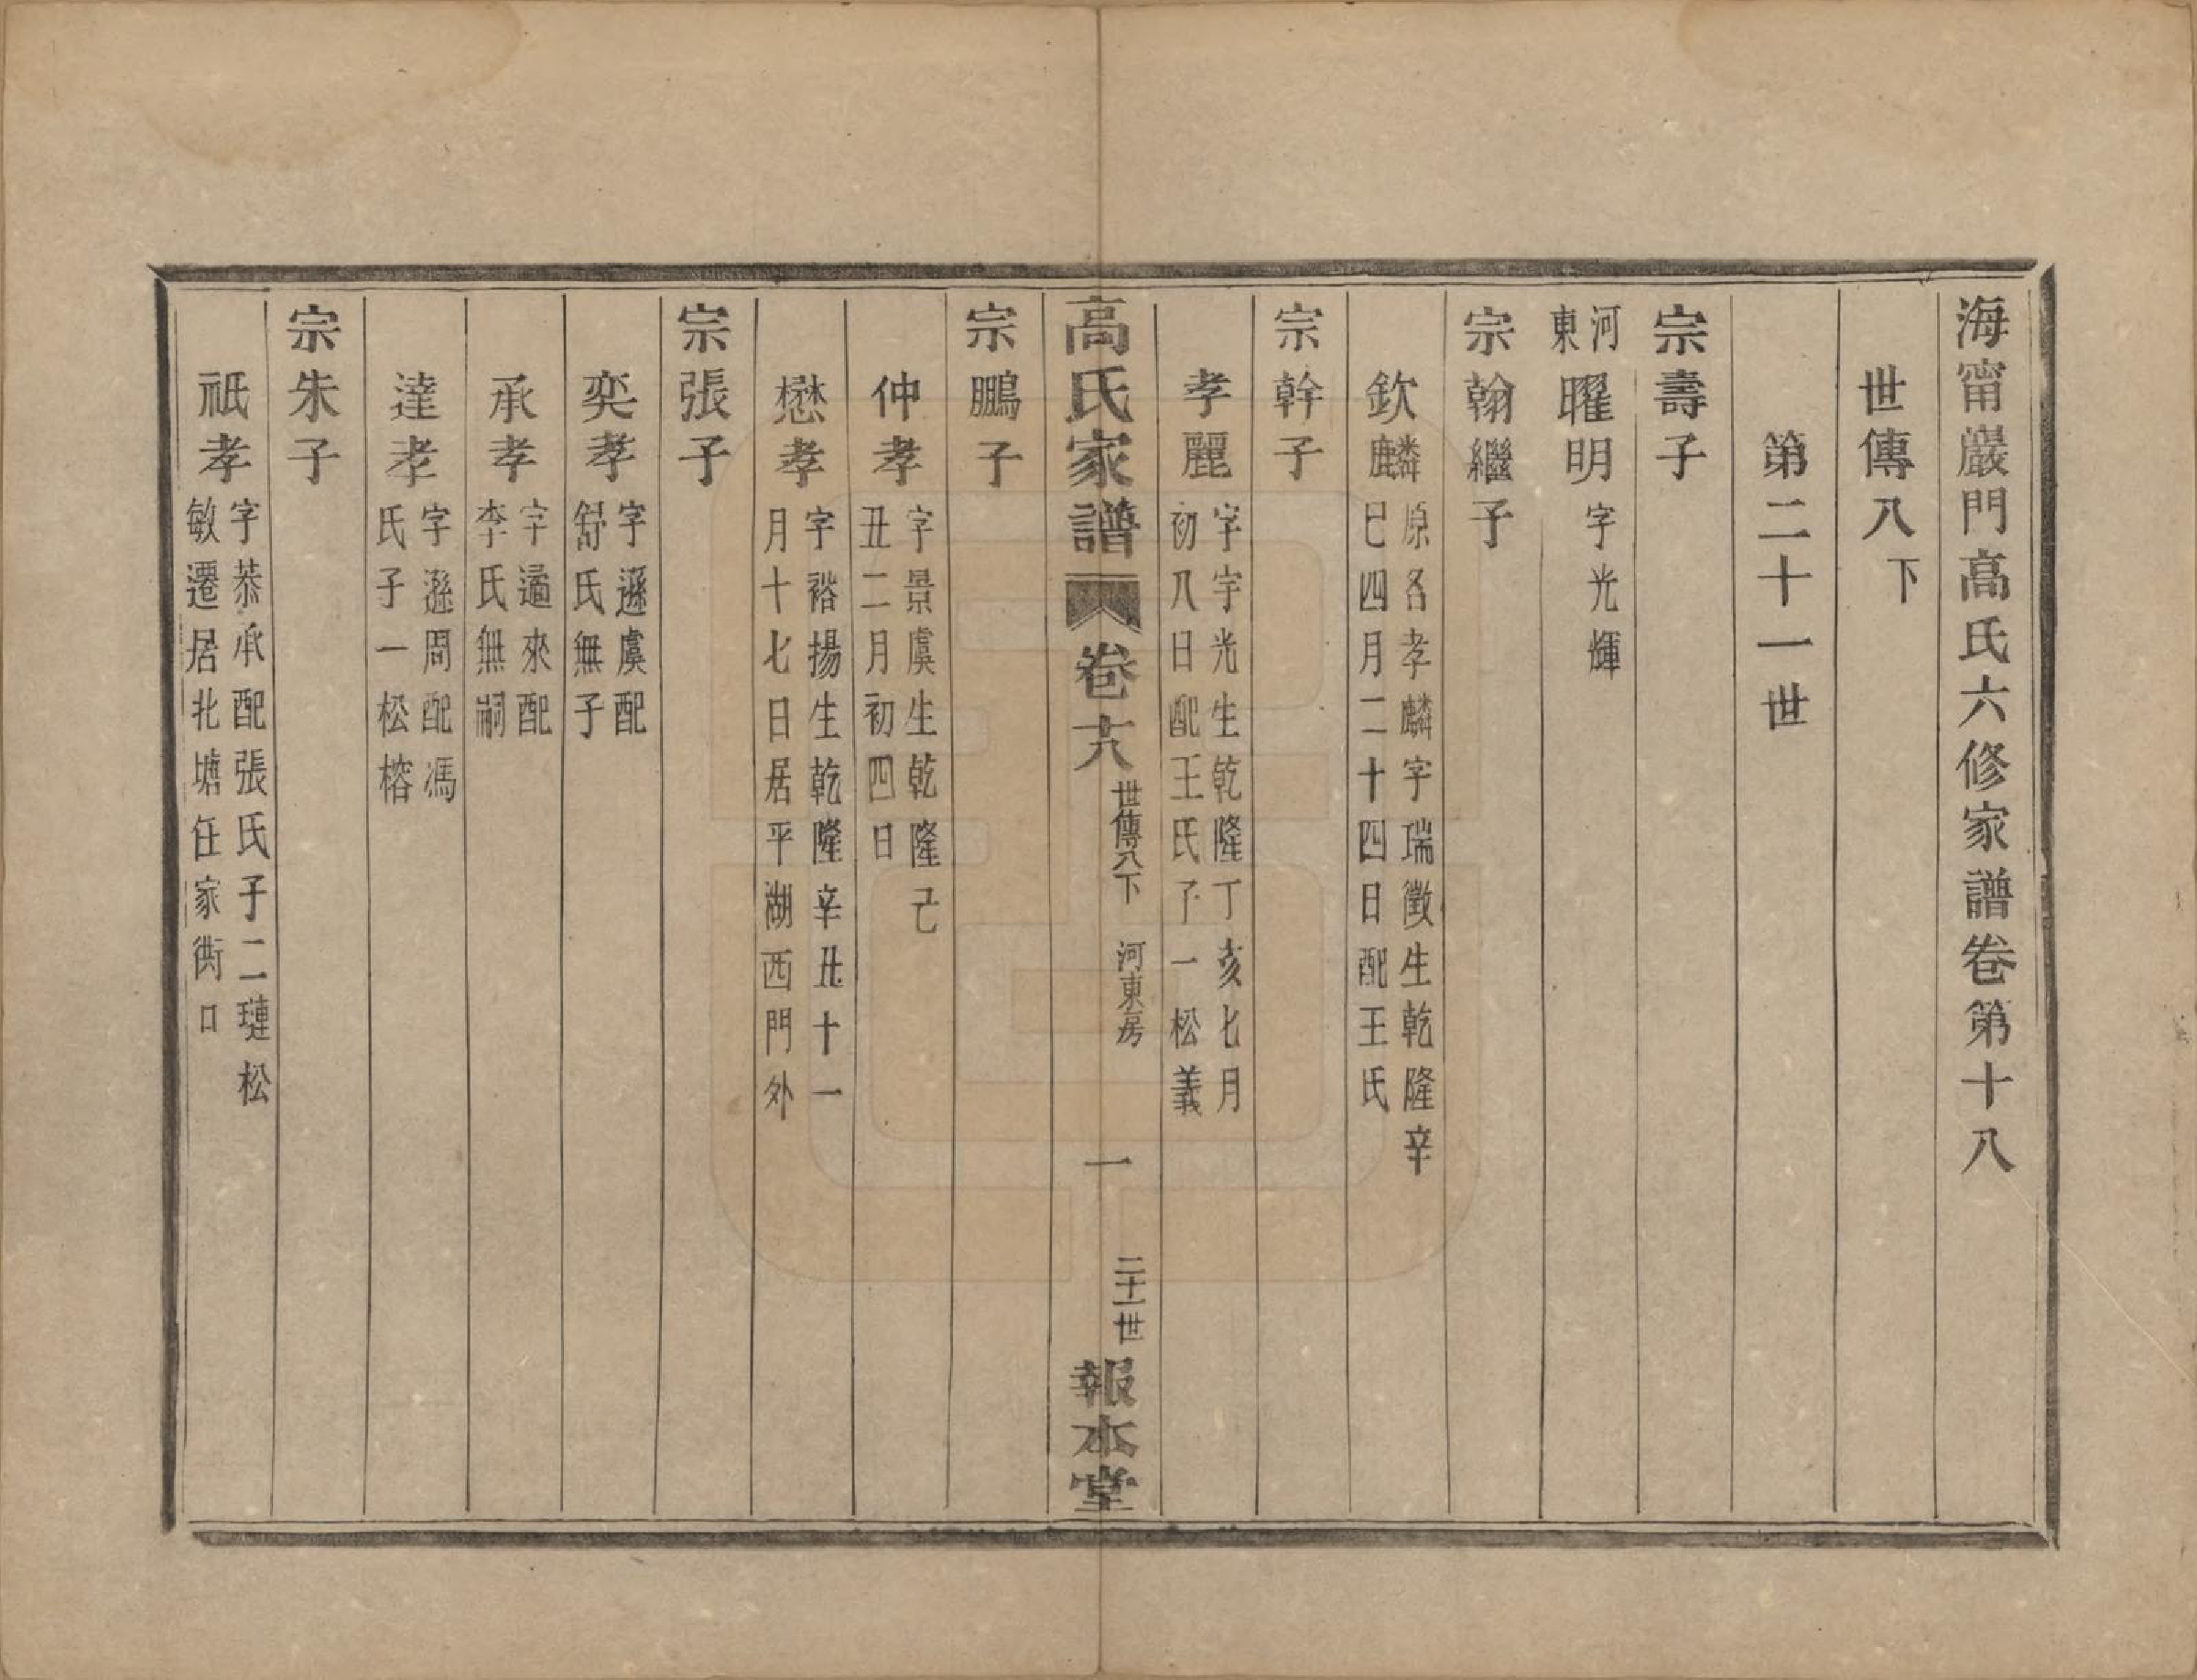 海甯巖門高氏六修家譜卷第十八
世傳八下
第二十一世
宗壽子
河東
曜明
字光輝
宗翰繼子
欽麟
原名孝麟字瑞徵生乾隆辛
巳四月二十四日配王氏
宗幹子
孝麗
字宇光生乾隆丁亥七月
初八日配王氏子一松義
高氏家譜
卷十八
世傳八下
河東房
一
二十一世
報本堂
宗鵬子
仲孝
字景虞生乾隆己
丑二月初四日
懋孝
字裕揚生乾隆辛丑十一
月十七日居平湖西門外
宗張子
奕孝
字遜虞配
舒氏無子
承孝
字遹來配
李氏無嗣
達孝
字遜周配馮
氏子一松榕
宗朱子
祇孝
字恭承配張氏子二璉松
敏遷居北塘任家衖口